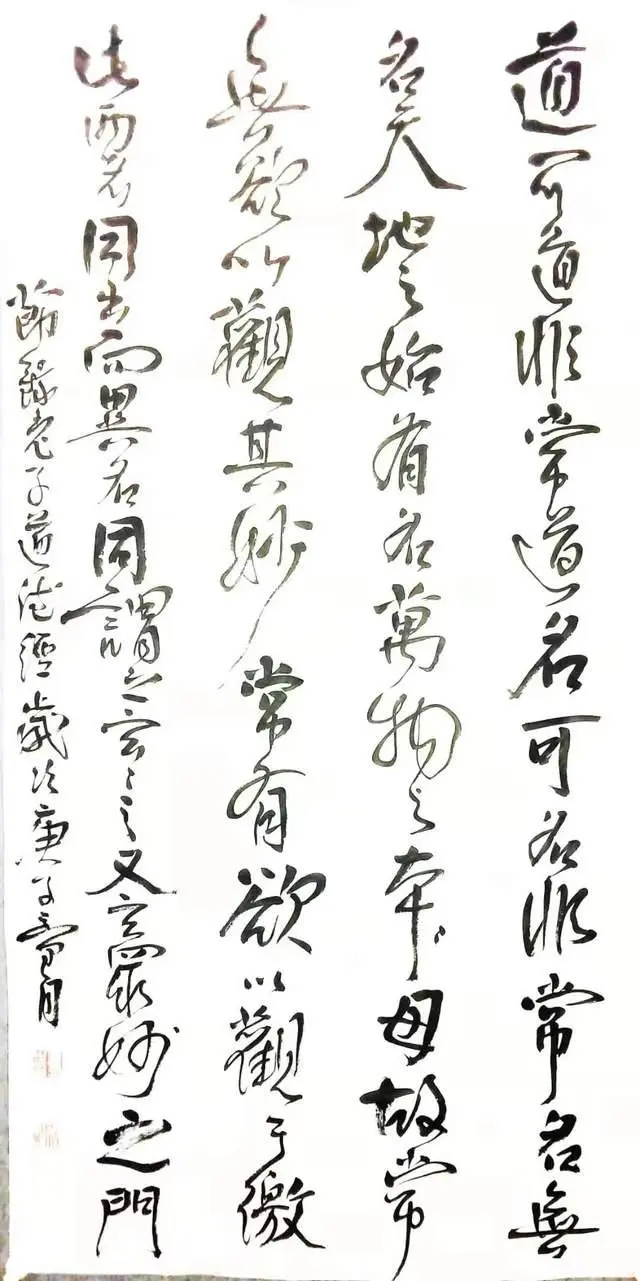 道可道非常道名可名非常名無
名天地之始有名萬物之本母故常
無欲以觀其妙常有欲以觀其徼
此兩者同出而異名同謂之玄〻之又玄眾妙之門
節錄老子道德經歲次庚子月